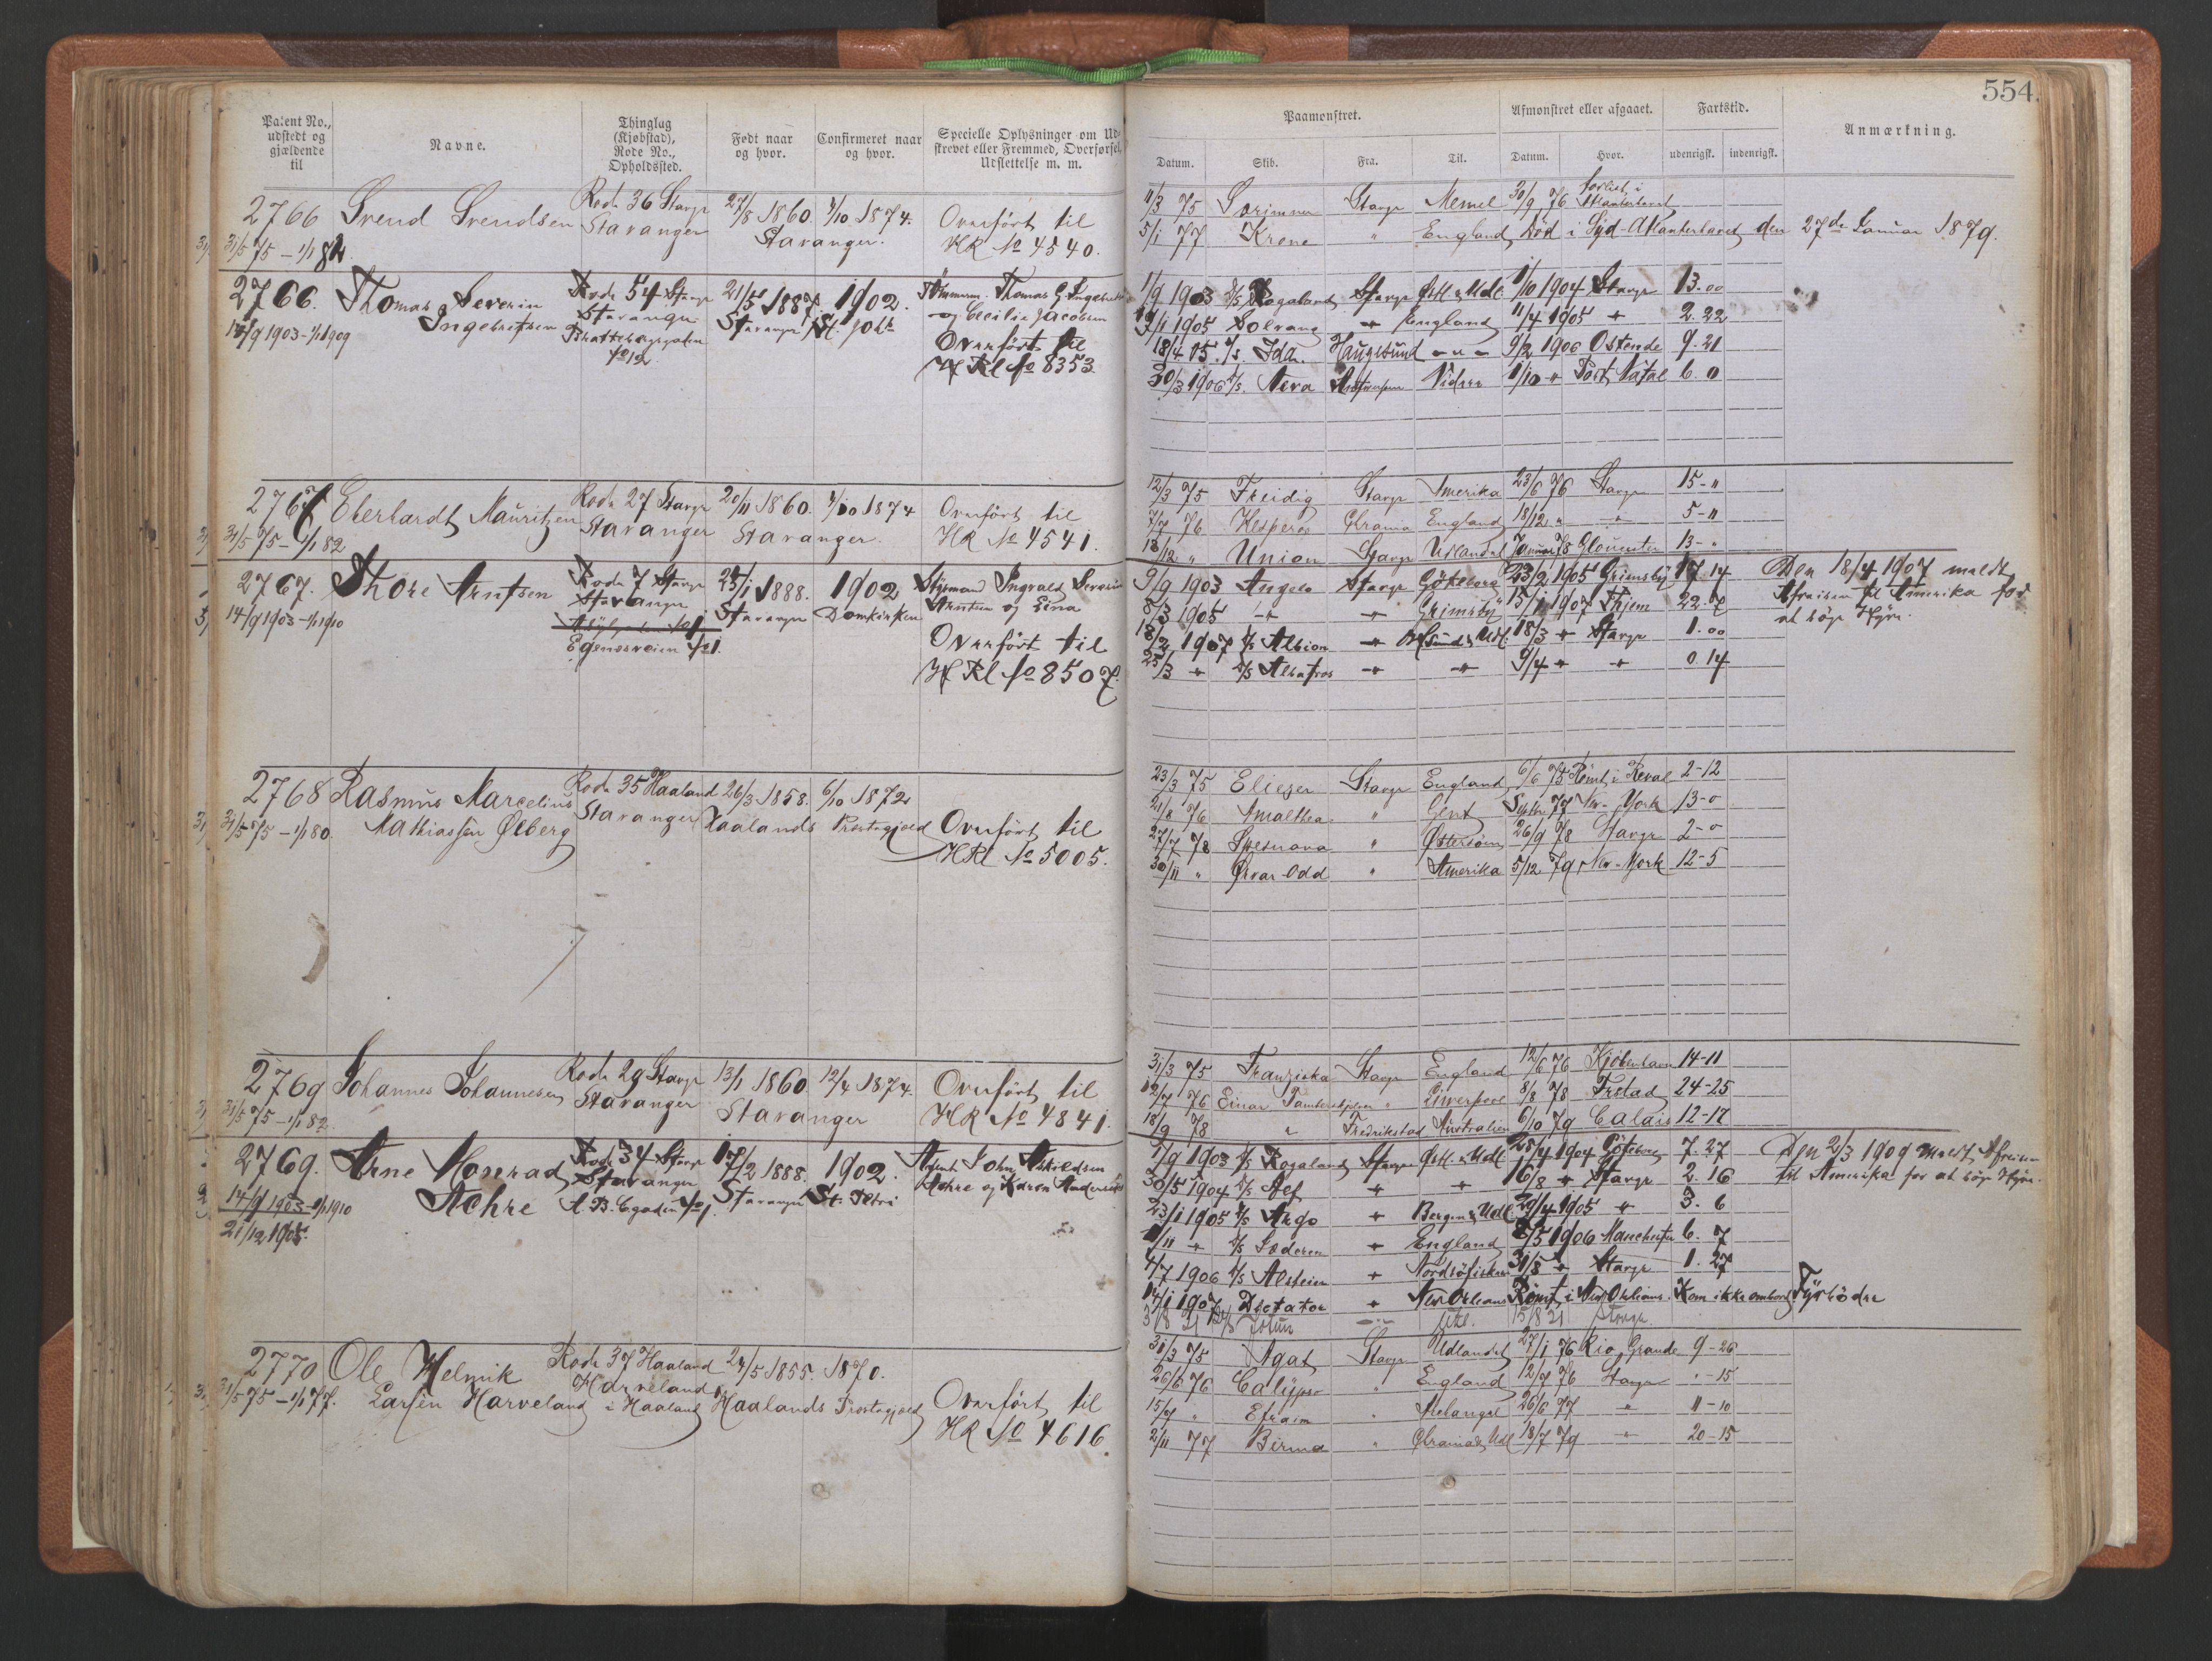 554.
Patent No., udstedt og gjældende til
Navne.
Thinglag (Kjøbstad), Rode No., Opholdssted.
Født naar og hvor.
Confirmeret naar og hvor.
Specielle Oplysninger om Udskrevet eller Fremmed, Overførsel, Udslettelse m. m.
Paamønstret.
Afmønstret eller afgaaet.
Fartstid.
Anmærkning.
Datum.
Skib.
Fra.
Til.
Datum.
Hvor.
udenrigsk.
indenrigsk.
2766 Svend Svendsen Rode 36 Stavgr 27/8 1860. 4/10 1874. Overført til
31/5 75 – 1/1 82. Stavanger Stavanger. HR No 4540.
11/3 75 Særimner Stavgr Memel 30/9 76 Forlist i Atlanterhavet
5/1 77 Krone " England Død i Syd-Atlanterhavet den 27de Januar 1879.
2766. Thomas Severin Rode 54 Stavgr 21/5 1887. 1902. Tømmerm. Thomas G. Ingebretsen
Ingebretsen Stavanger Stavanger St. Joh. og Cecilie Jacobsen
14/9 1903 – 1/1 1909 No 12 Overført til
H Rl No 8353.
1/9 1903 D/S Rogaland Stavgr Østl. & Udl. 1/10 1904 Stavgr 13.00
1905 Solvang England 11/4 1905 2.22
18/4 05. D/S. Ida. Haugesund – " – 9/2 1906 Ostende 9.21
30/3 1906 D/S. Neva Antwerpen Videre 1/10 " Port Natal 6.0
2767 Eberhardt Mauritzen Rode 27 Stavgr 20/11 1860. 4/10 1874 Overført til
31/5 75 – 1/1 82 Stavanger Stavanger. HR No 4541.
12/3 75 Freidig Stavgr Amerika 23/6 76 Stavgr 15 - "
7/7 76 Hesperos Chrania England 18/12 " " 5 - "
18/12 " Union Stavgr Udlandet Januar 78 Gloucester 13 - "
2767. Thore Arntsen Rode 7 Stavgr 25/1 1888. 1902 Styrmand Ingvald Severin
14/9 1903 – 1/1 1910 Stavanger Stavanger Domkirken Arntsen og Lina
Egenesveien No 1. Overført til
H Rl No 8507.
9/9 1903 Angelo Stavgr Göteborg 23/2 1905 Grimsby 17.14 Den 18/4 1907 meldt
8/3 1905 Grimsby 15/1 1907 Hjem 22.7 Afreisen til Amerika for
18/2 1907 D/S Albion 18/3 Stavgr 1.00 at søge Hyre.
25/3 D/S Albatros 9/4 0.14
2768 Rasmus Marcelius Rode 35 Haaland 26/3 1858. 6/10 1872
31/5 75 – 1/1 80. Mathiassen Ølberg Stavanger Haalands Prestegjeld Overført til
HRl No 5005.
23/3 75 Elieser Stavgr England 6/6 75 Rømt i Reval 2-12
21/8 76 Amalthea " Gent Septbr 77 New-York 13-0
27/7 78 Spesnova " Østersøen 26/9 78 Stavgr 2-0
30/11 " Ørvar Odd " Amerika 5/12 79 New-York 12-5
2769 Johannes Johannesen Rode 29 Stavgr 13/1 1860 12/4 1874. Overført til
31/5 75 – 1/1 82. Stavanger Stavanger HR No 4841.
31/3 75 Franziska Stavgr England 12/6 76 Kjøbenhavn 14-11
12/7 76 Einar Tambarskjelver " Liverpool 8/8 78 Frstad 24-25
18/9 78 " Fredrikstad Australien 6/10 79 Calais 12-17
2769. Arne Monrad Rode 34 Stavgr 17/2 1888. 1902. Agent John Askredsen
14/9 1903 – 1/1 1910 Aehre Stavanger Stavanger St. Petri Aehre og Karen Andersen
21/12 1905.
1/9 1903 D/S Rogaland Stavgr Østl. & Udl. 28/4 1904 Göteborg 7.27 Den 2/3 1909 meldt Afreisen
30/5 1904 D/S Alf 16/8 Stavgr 2.16 til Amerika for at søge Hyre.
23/1 1905 D/S Argo Bergen & Udl. 29/4 1905 3.6
D/S Søderen England 8/5 1906 Manchester 6.7
4/7 1906 D/S Alstein Nordsøfisken 31/8 Stavgr 1.27
14/1 1907 Dictator New Orleans Rømt i New Orleans. Kom ikke ombord Fyrbøder
3/8 21 D/S Jotun Udl. 15/8 21 Stavgr
2770 Ole Helmik Rode 37 Haaland 24/5 1855. 1870.
31/5 75 – 1/1 77. Larsen Harveland Harveland i Haaland Haalands Prestegjeld Overført til
HR No 4616.
31/3 75 Agat Stavgr Udlandet 27/1 76 Rio Grande 9-26
26/6 76 Calypso " England 12/7 76 Stavgr "-15
15/9 " Efraim " Archangel 26/6 77 " 11-10
2/11 77 Birma " Chrania & Udl 18/7 79 " 20-15